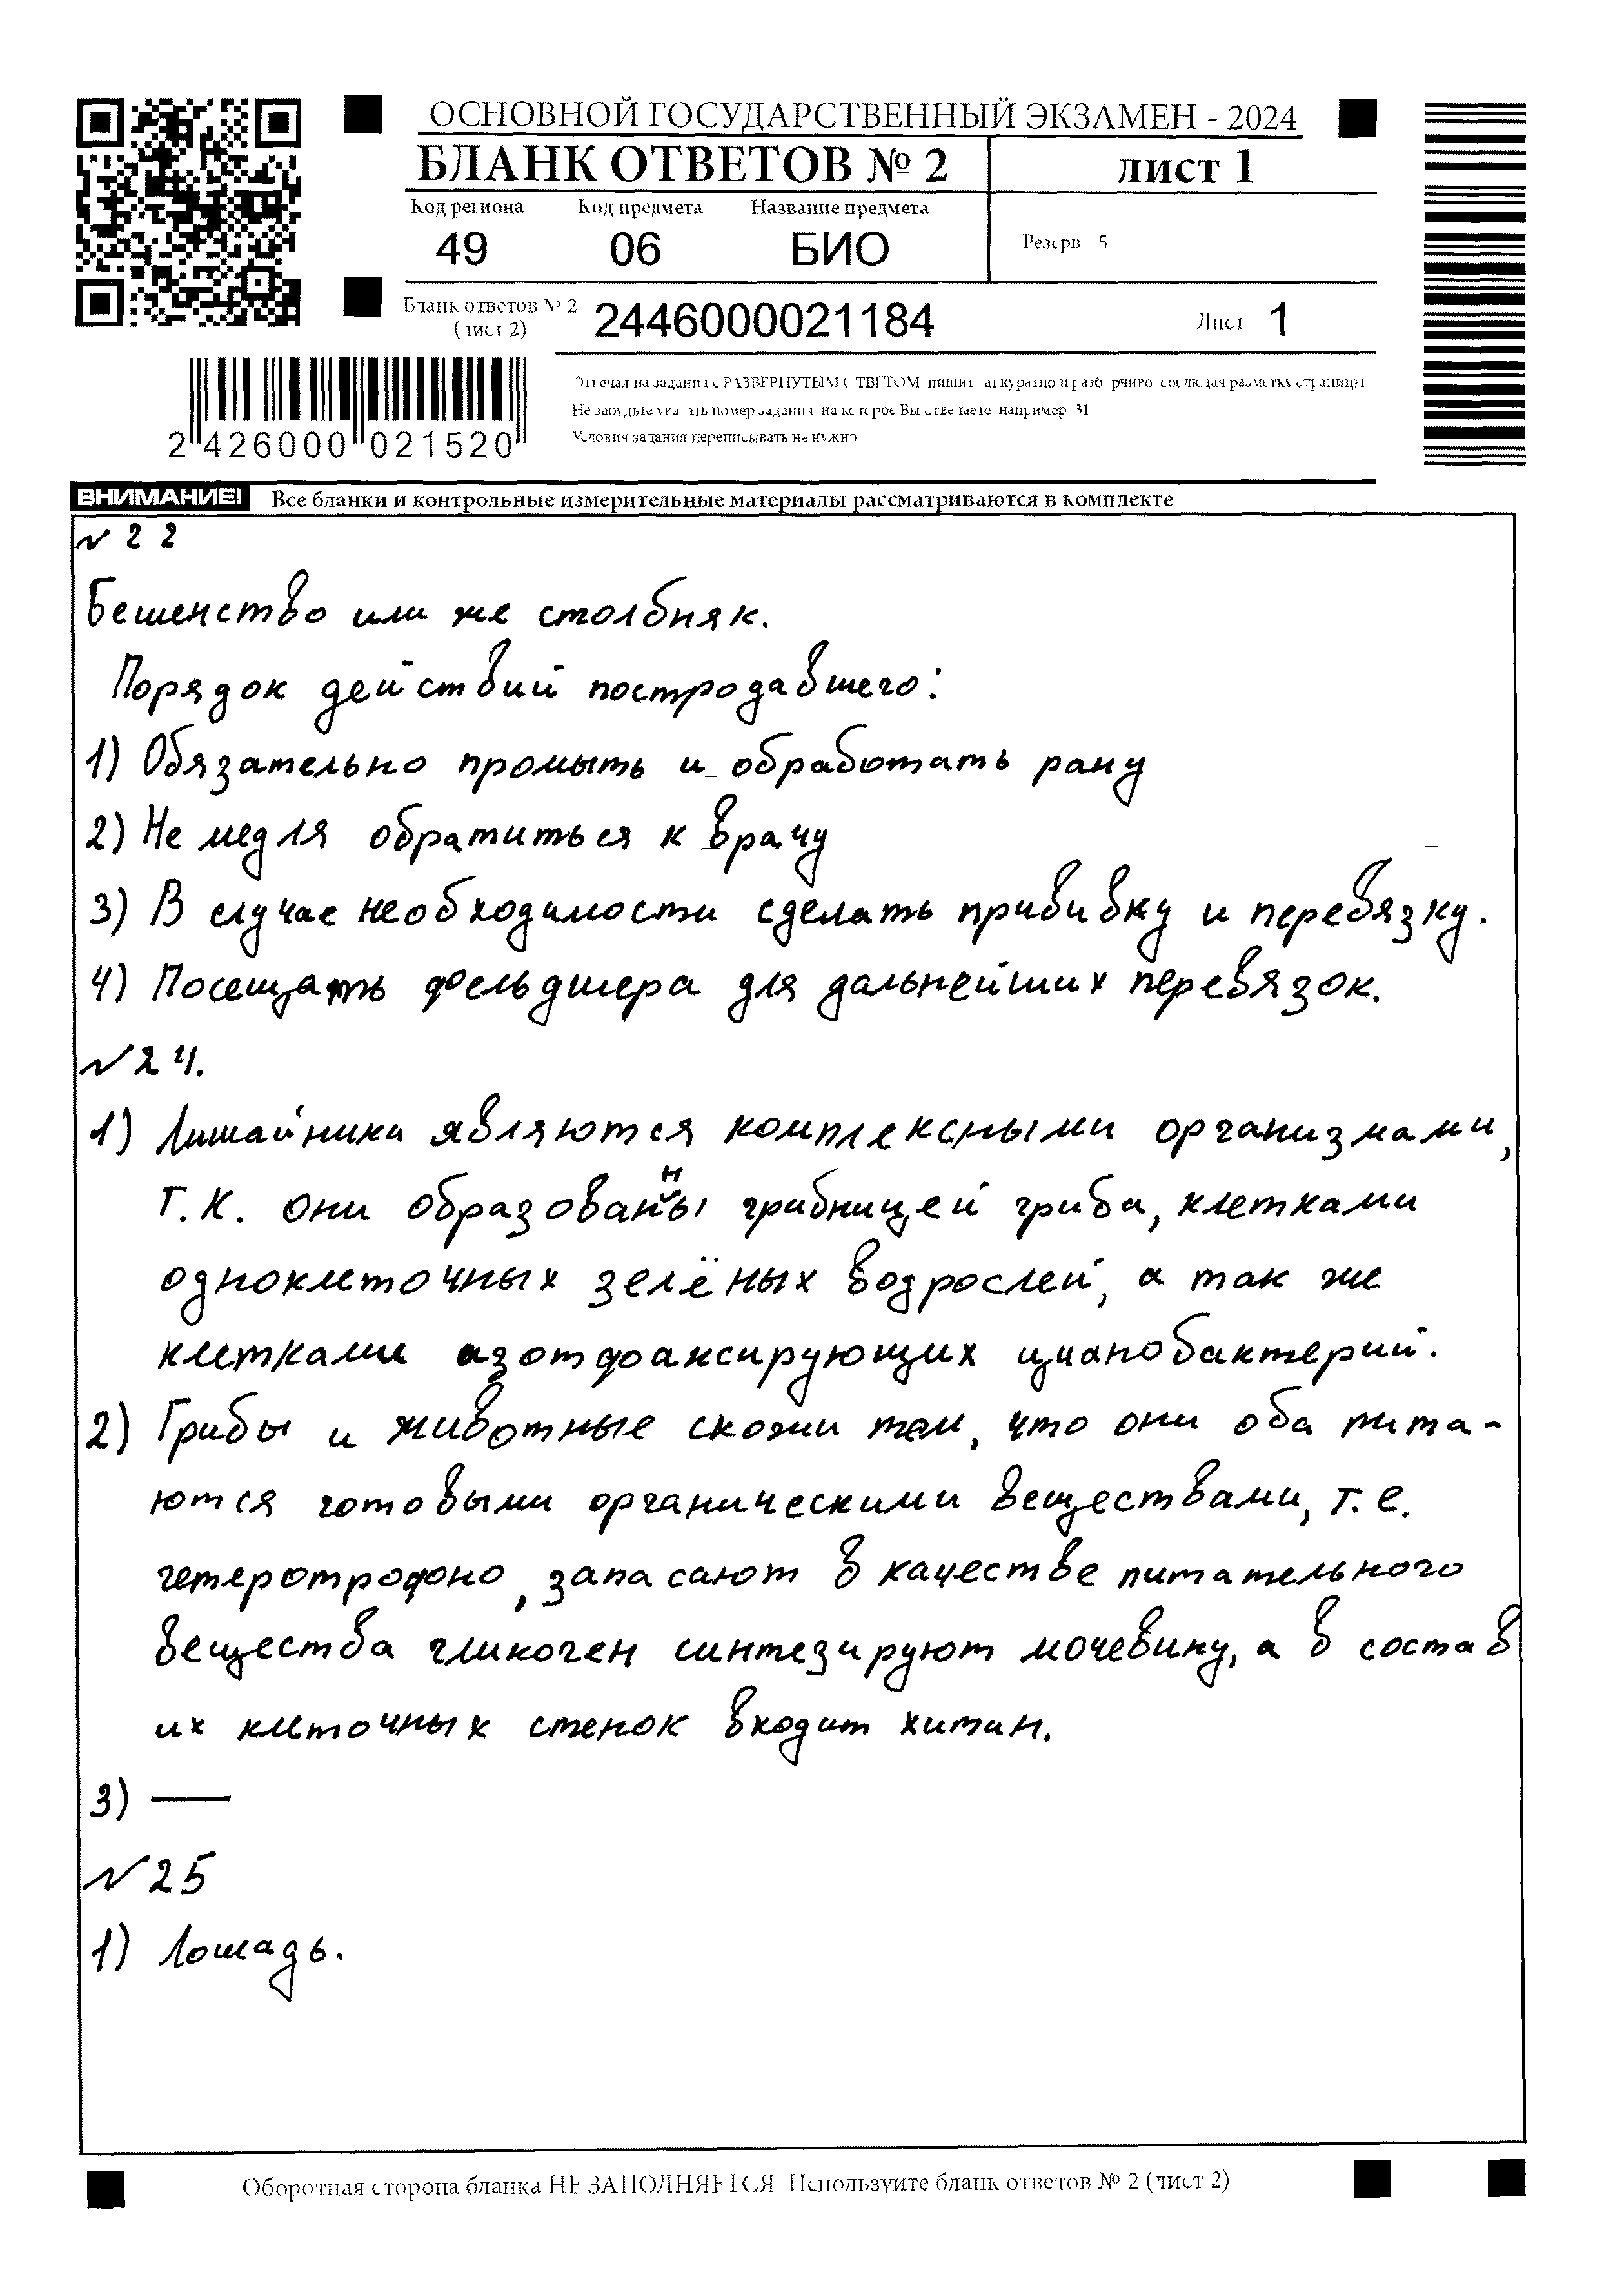 ОСНОВНОЙ ГОСУДАРСТВЕННЫЙ ЭКЗАМЕН - 2024
БЛАНК ОТВЕТОВ № 2 лист 1
Код региона Код предмета Название предмета
49 06 БИО Резерв 5
Бланк ответов № 2 (лист 2) 2446000021184 Лист 1
Не номер задания на которое Вы например 31
Условия задания переписывать не нужно
2 426000 021520
ВНИМАНИЕ! Все бланки и контрольные измерительные материалы рассматриваются в комплекте
№ 22
Бешенство или же столбняк.
Порядок действий постродавшего:
1) Обязательно промыть и обработать рану
2) Не медля обратиться к врачу
3) В случае необходимости сделать прибивку и перевязку.
4) Посещать фельдшера для дальнейших перевязок.
№ 24.
1) Лишайники являются комплексными организмами,
т.к. они образованны грибницей гриба, клетками
одноклеточных зелёных водрослей, а так же
клетками азотфоаксирующих цианобактерий.
2) Грибы и животные схожи тем, что они оба пита-
ются готовыми органическими веществами, т.е.
гетеротрофоно, запасают в качестве питательного
вещества гликоген синтезируют мочевину, а в состав
их клеточных стенок входит хитин.
3) —
№ 25
1) Лошадь.
Оборотная сторона бланка НЕ ЗАПОЛНЯЕТСЯ Используйте бланк ответов № 2 (лист 2)